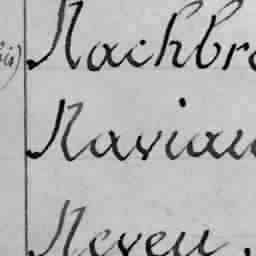 bis) Nachbra
Naviau
Neveu.